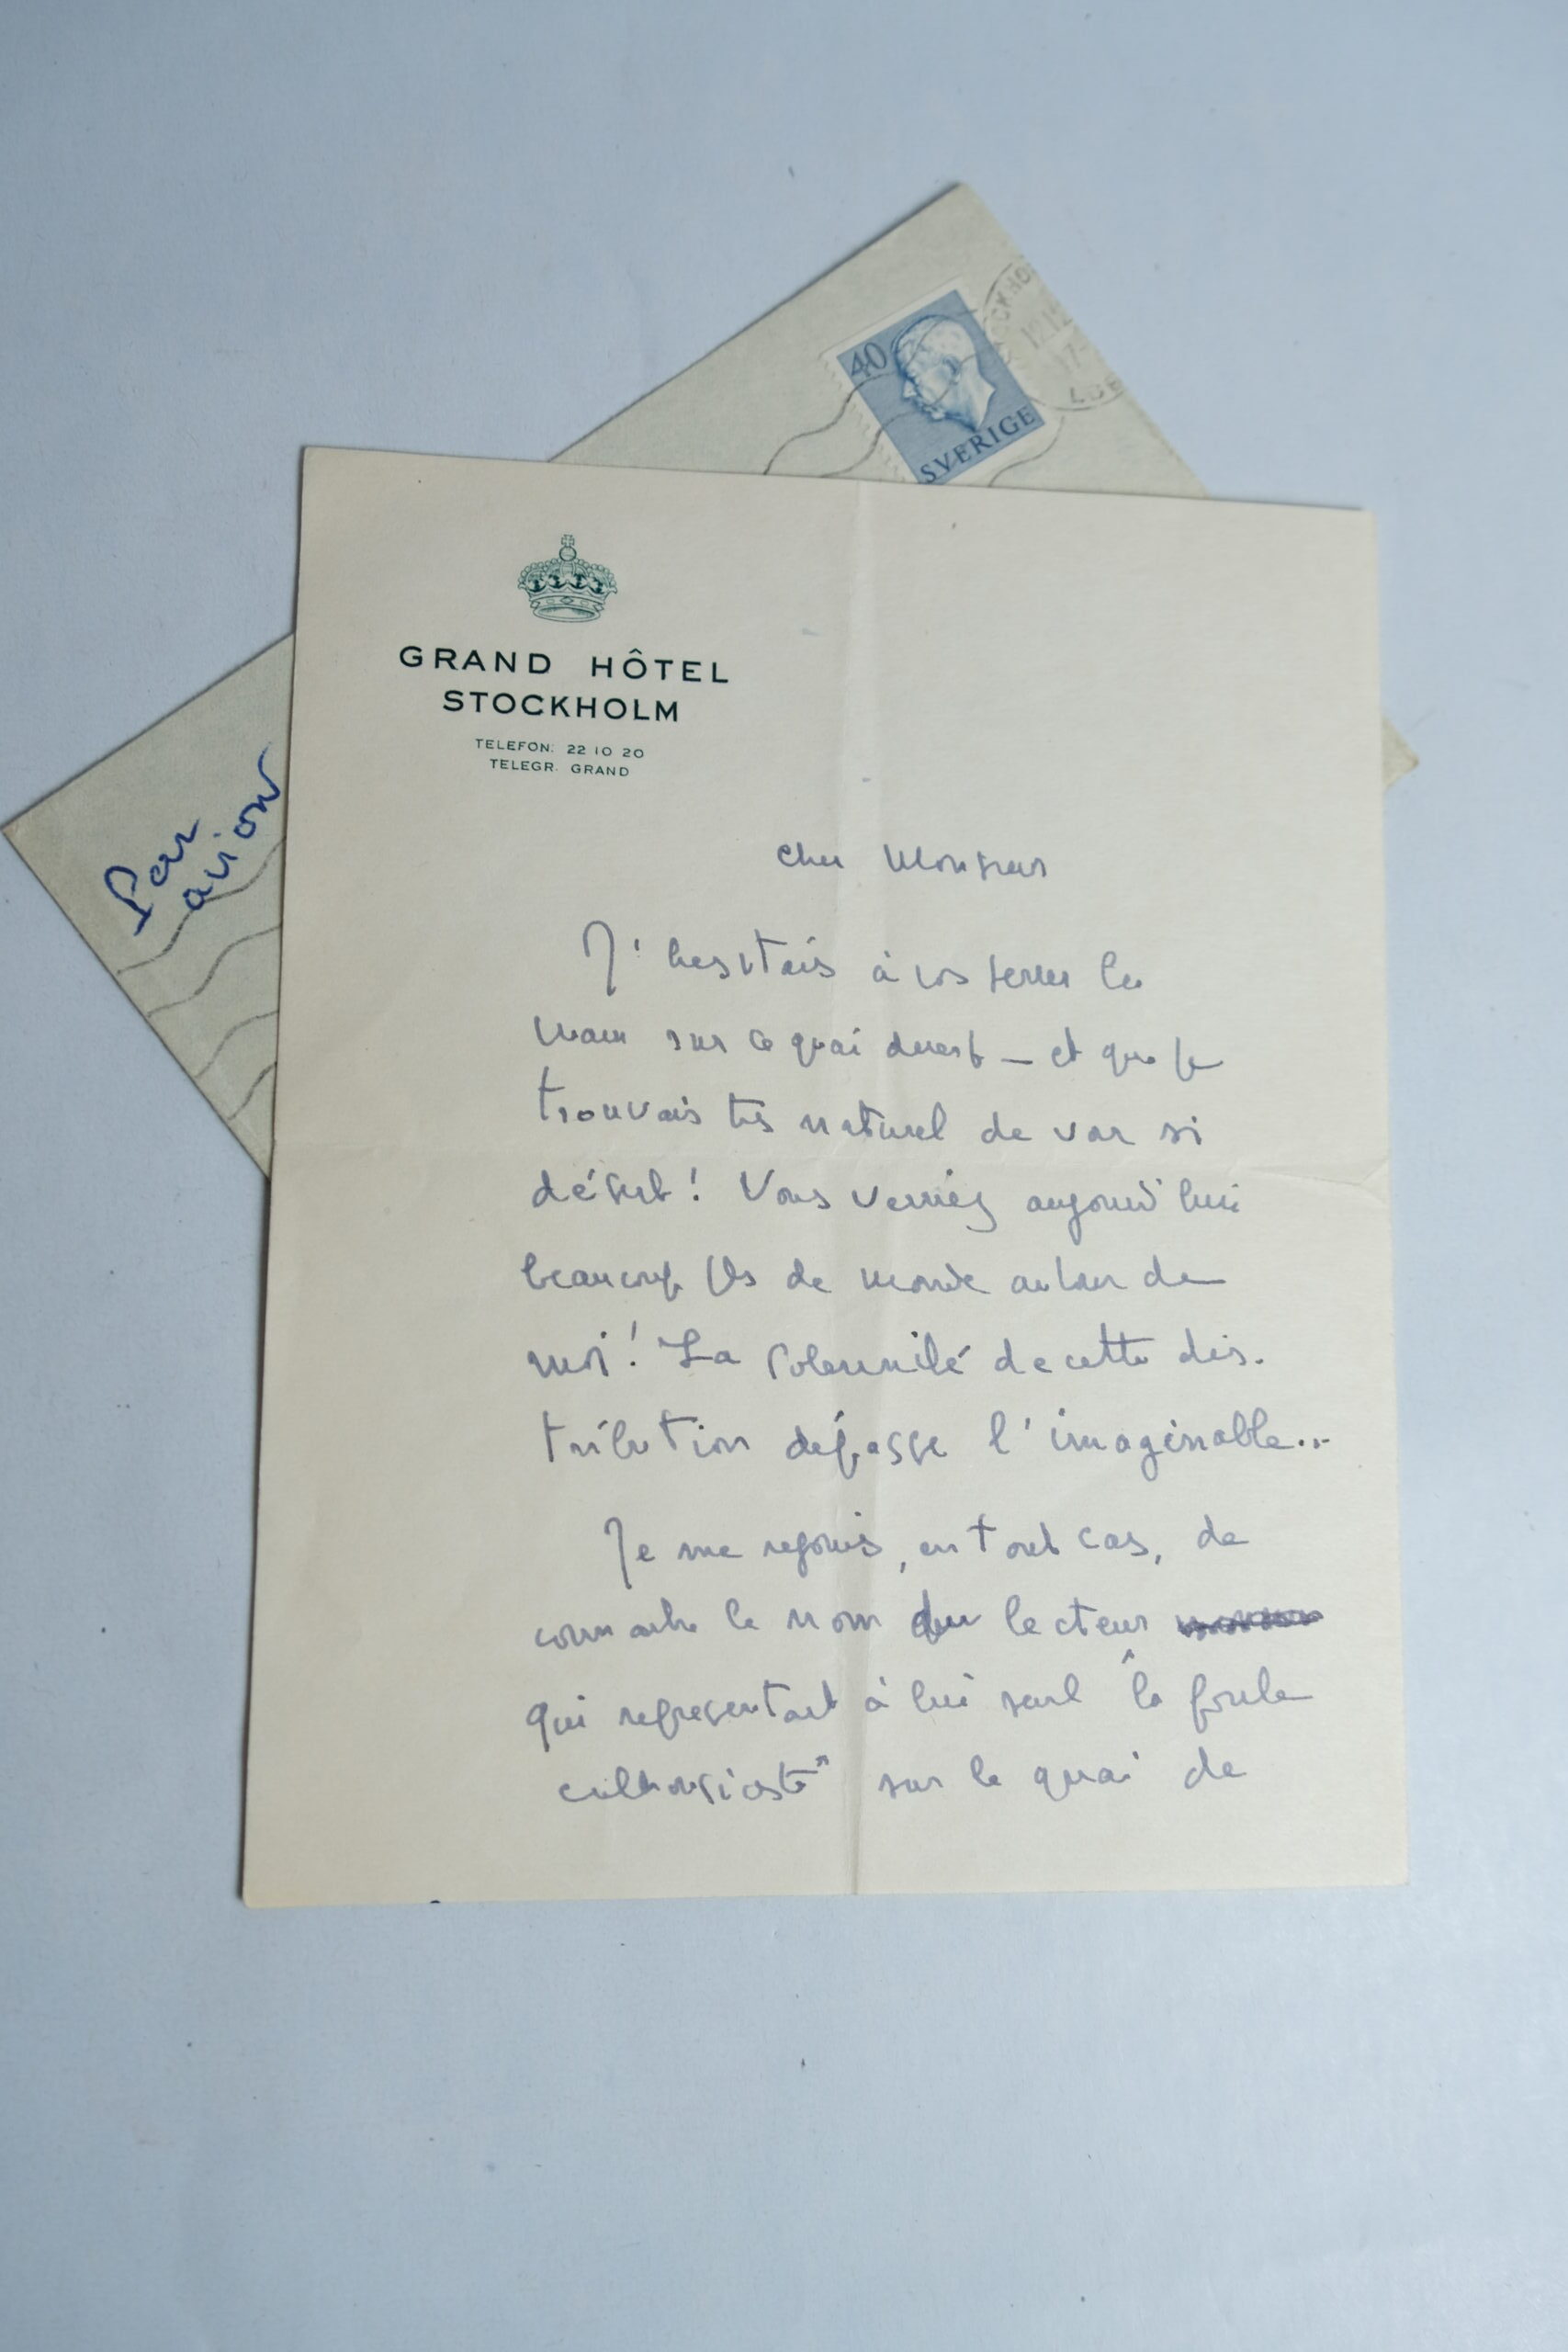 40
SVERIGE
STOCKHO
12.12
17-
LBR
Par
avion
GRAND HÔTEL
STOCKHOLM
TELEFON: 22 10 20
TELEGR. GRAND
Cher Monsieur
J'hesitais à vous serrer la
main sur ce quai desert — et que je
trouvais très naturel de voir si
désert! Vous verriez aujourd'hui
beaucoup plus de monde autour de
moi! La solennité de cette dis-
tribution dépasse l'imaginable...
Je me rejouis, en tout cas, de
connaitre le nom du lecteur
qui representait à lui seul "la foule
enthousiaste" sur le quai de